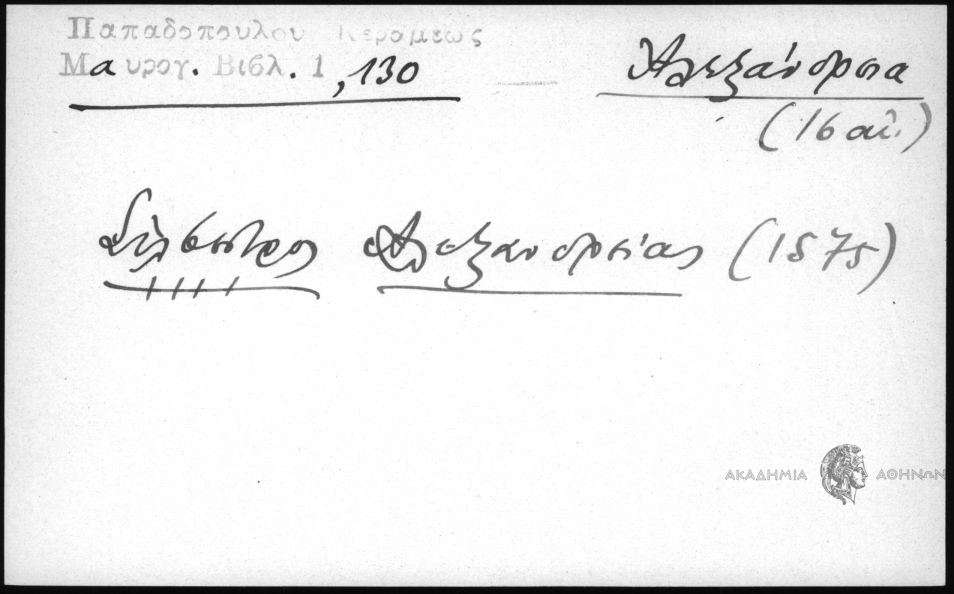 Παπαδοπουλου Κεραμεως
Μαυρογ. Βιβλ. 1, 130
Ἀλεξάνδρεια
(16 αἰ.)
Σίλβεστρος Ἀλεξανδρείας (1575)
ΑΚΑΔΗΜΙΑ ΑΘΗΝΩΝ